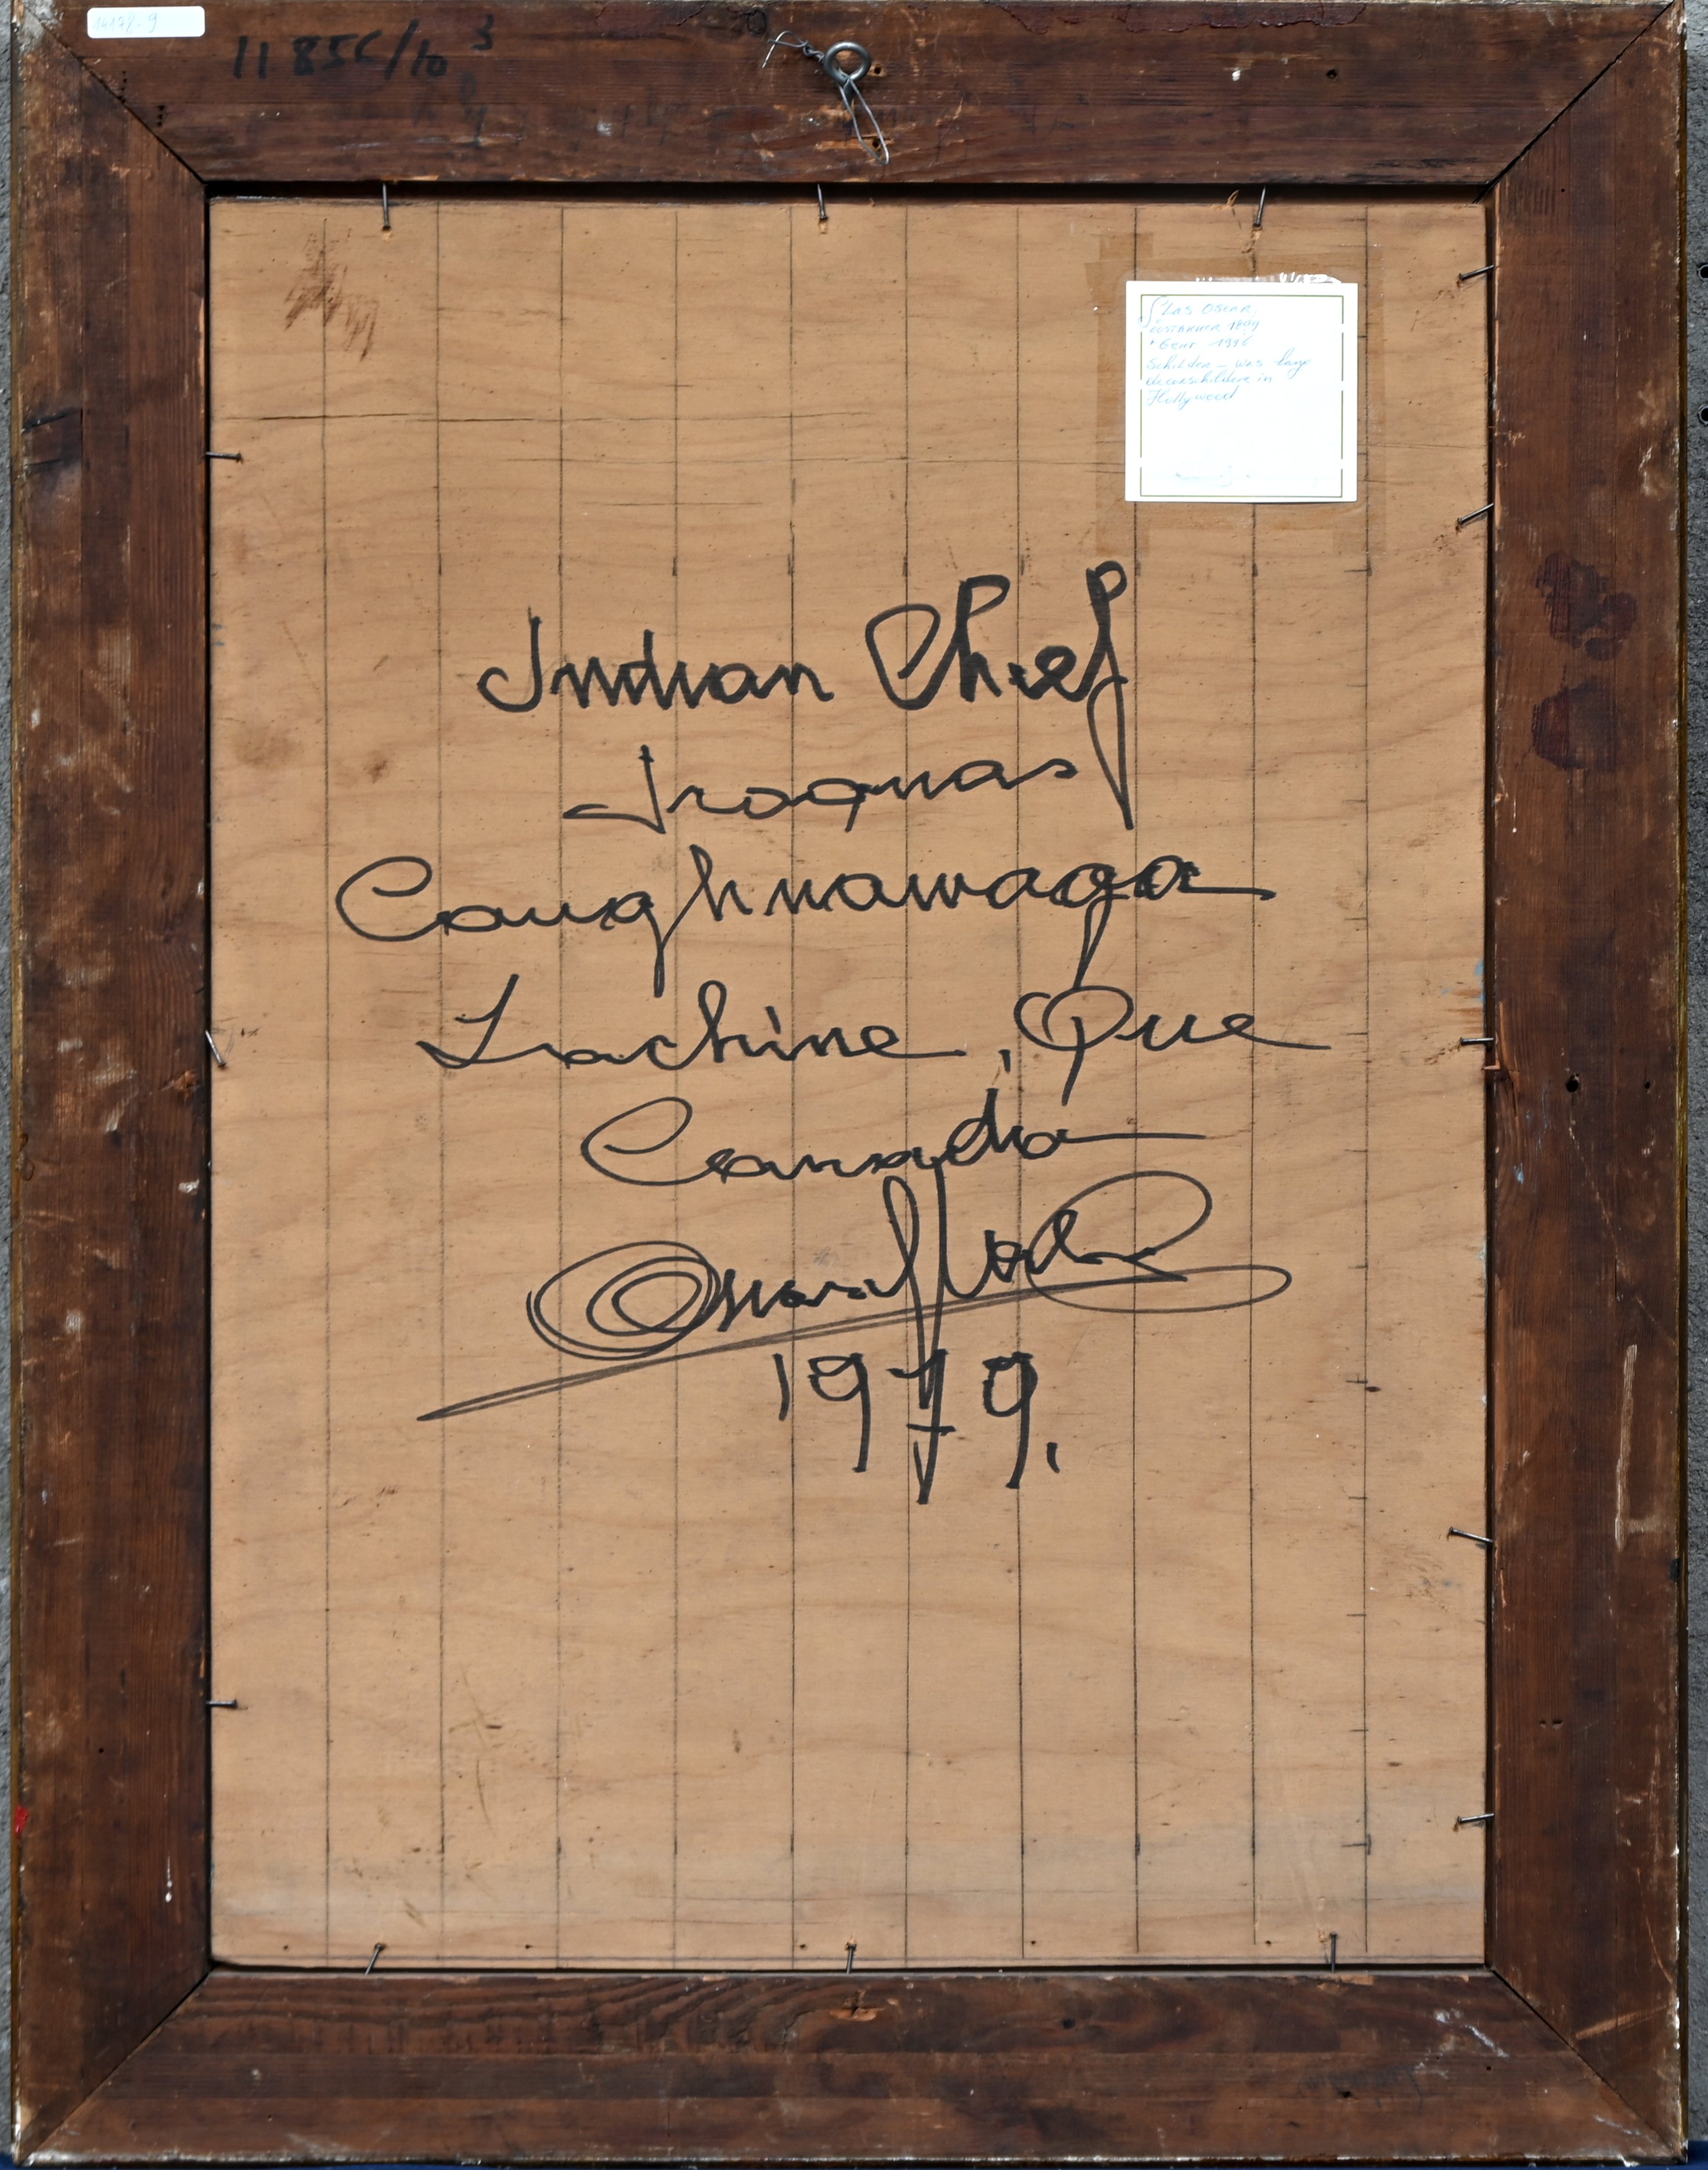 14172-9
11856/10 3
Flas Oscar,
oostakker 1899
Gent 1996
Schilder - was lang
decorschilder in
Hollywood
Indian Chief
Iroquas
Caughnawaga
Lachine, Que
Canada
Oscar Flas
1979.